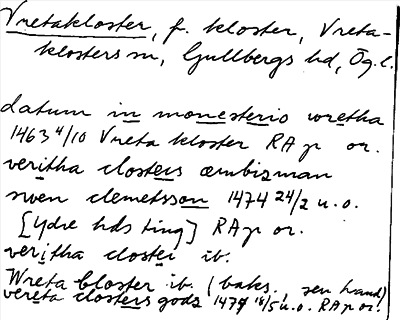 Vretakloster, f. kloster, Vreta-
klosters sn, Gullbergs hd, Ög.l.
datum in monesterio wretha
1463 4/10 Vreta kloster RAp or.
veritha closters æmbizman
swen clemetsson 1474 24/2 u.o.
[Ydre hds ting] RAp or.
veritha closter ib.
Wreta closter ib. (baks., sen hand)
vereta closters godz 1479 18/5 u.o. RAp or.